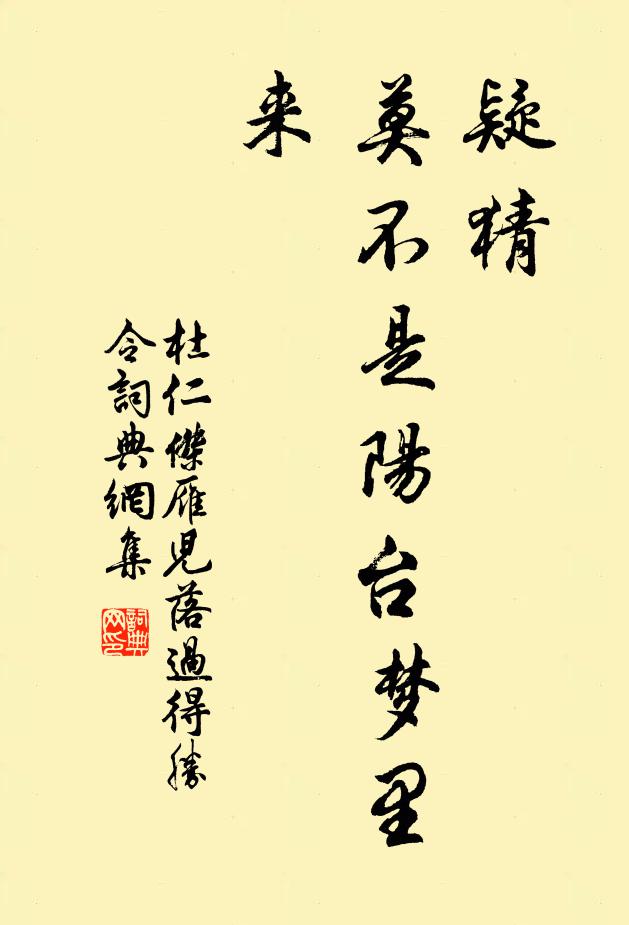 疑猜
莫不是陽台梦里
来
杜仁傑雁児落過得勝
令詞典網集
詞典
网印